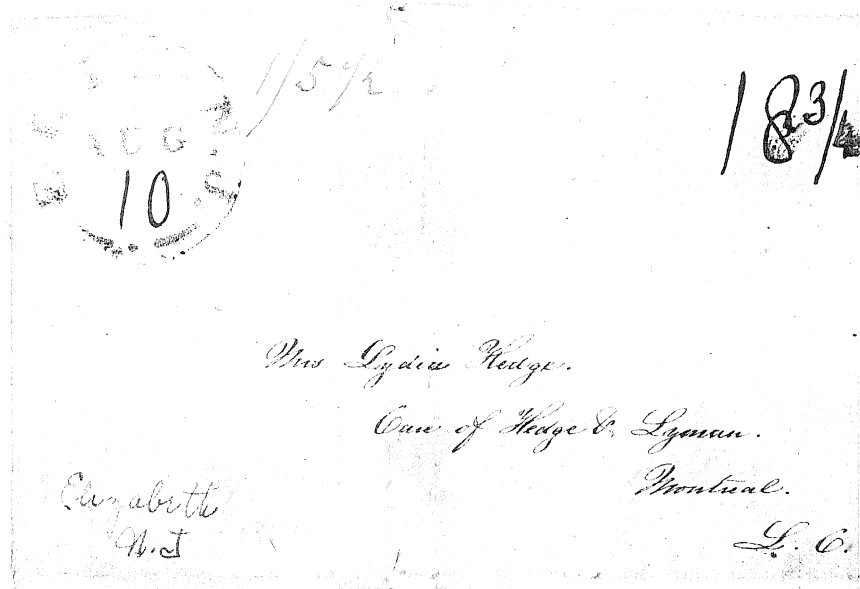 1/5 1/2
18 3/4
AUG
10
N.J.
Mrs Lydia Hedge.
Care of Hedge & Lyman.
Montreal.
L. C.
Elizabeth
N.J